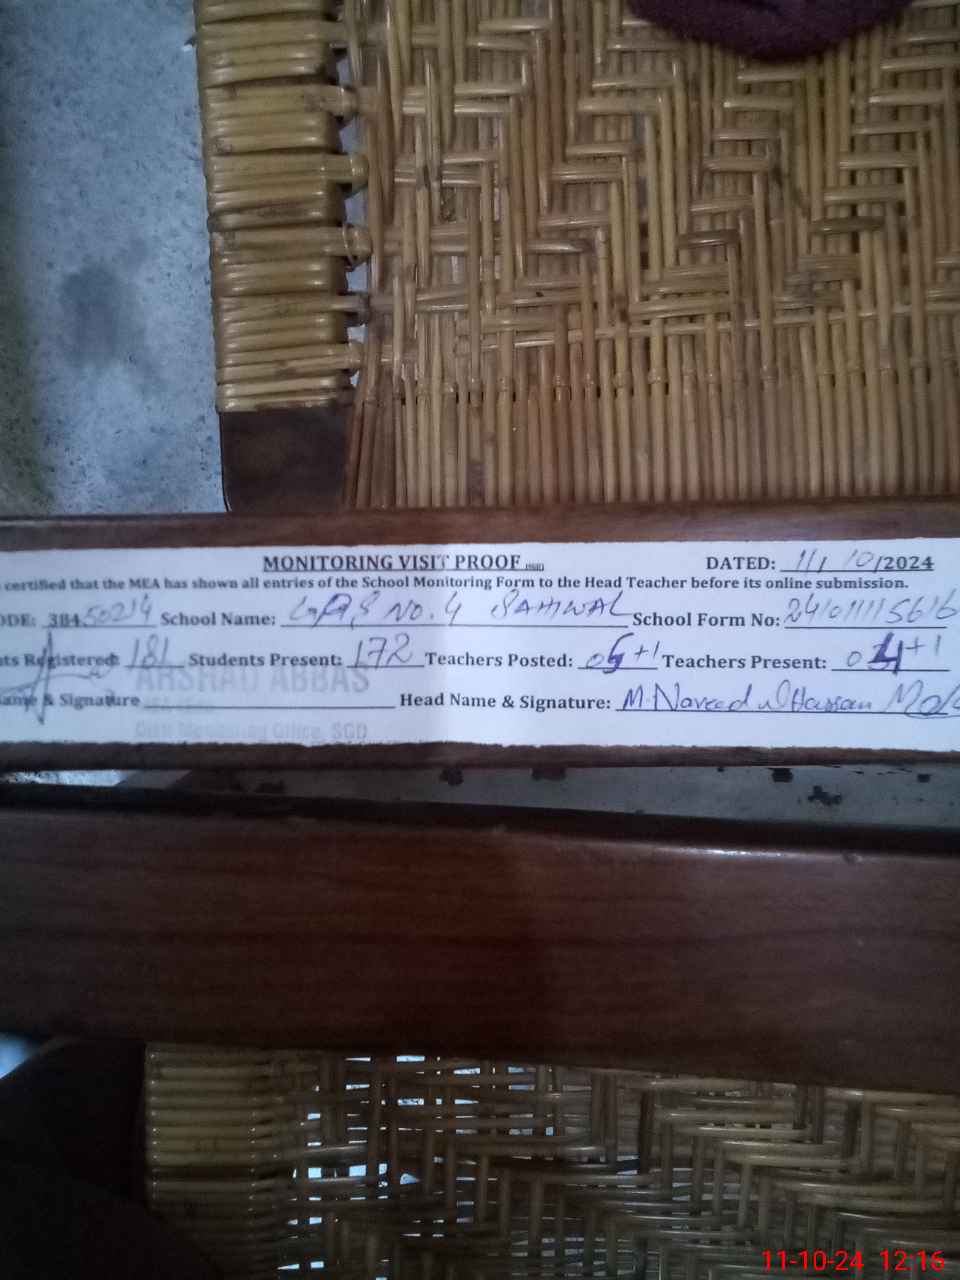 MONITORING VISIT PROOF DATED: 11/10/2024
certified that the MEA has shown all entries of the School Monitoring Form to the Head Teacher before its online submission.
ODE: 38450214 School Name: GPS NO. 4 SAHIWAL School Form No: 241011115616
ts Registered: 181 Students Present: 172 Teachers Posted: 05+1 Teachers Present: 04+1
ARSHAD ABBAS
ame & Signature Head Name & Signature: M. Naveed ul Hassan
Office, SGD
11-10-24 12:16